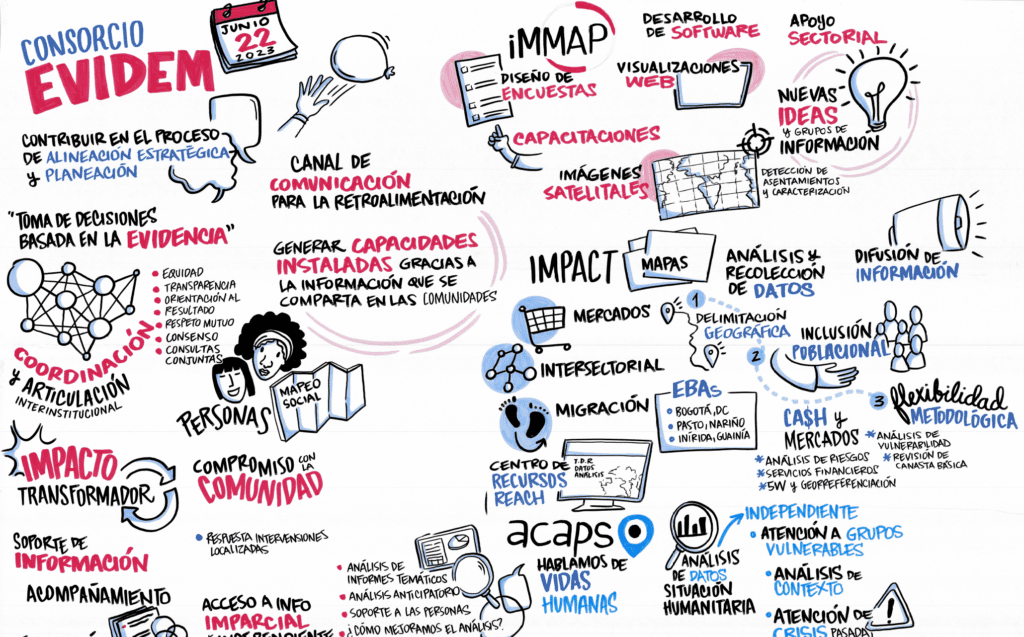 CONSORCIO
EVIDEM
JUNIO
22
2023
CONTRIBUIR EN EL PROCESO
DE ALINEACIÓN ESTRATÉGICA
Y PLANEACIÓN
"TOMA DE DECISIONES
BASADA EN LA EVIDENCIA"
• EQUIDAD
• TRANSPARENCIA
• ORIENTACIÓN AL
• RESULTADO
• RESPETO MUTUO
• CONSENSO
• CONSULTAS
CONJUNTAS
COORDINACIÓN
Y ARTICULACIÓN
INTERINSTITUCIONAL
CANAL DE
COMUNICACIÓN
PARA LA RETROALIMENTACIÓN
GENERAR CAPACIDADES
INSTALADAS GRACIAS A
LA INFORMACIÓN QUE SE
COMPARTA EN LAS COMUNIDADES
PERSONAS
MAPEO
SOCIAL
IMPACTO
TRANSFORMADOR
COMPROMISO CON LA
COMUNIDAD
SOPORTE DE
INFORMACIÓN
• RESPUESTA INTERVENCIONES
LOCALIZADAS
ACOMPAÑAMIENTO
ACCESO A INFO
IMPARCIAL
• ANÁLISIS DE
INFORMES TEMÁTICOS
• ANÁLISIS ANTICIPATORIO
• SOPORTE A LAS PERSONAS
• ¿CÓMO MEJORAMOS EL ANÁLISIS?
iMMAP
DISEÑO DE
ENCUESTAS
DESARROLLO
DE SOFTWARE
APOYO
SECTORIAL
VISUALIZACIONES
WEB
NUEVAS
IDEAS
Y GRUPOS DE
INFORMACIÓN
CAPACITACIONES
IMÁGENES
SATELITALES
DETECCIÓN DE
ASENTAMIENTOS
Y CARACTERIZACIÓN
IMPACT
MAPAS
ANÁLISIS Y
RECOLECCIÓN
DE DATOS
DIFUSIÓN DE
INFORMACIÓN
MERCADOS
INTERSECTORIAL
MIGRACIÓN
1
DELIMITACIÓN
GEOGRÁFICA
2
INCLUSIÓN
POBLACIONAL
3
flexibilidad
METODOLÓGICA
EBAs
• BOGOTÁ, DC
• PASTO, NARIÑO
• INÍRIDA, GUAINÍA
CA$H Y
MERCADOS
* ANÁLISIS DE
VULNERABILIDAD
* REVISIÓN DE
CANASTA BÁSICA
* ANÁLISIS DE RIESGOS
* SERVICIOS FINANCIEROS
* 5W Y GEORREFERENCIACIÓN
CENTRO DE
RECURSOS
REACH
T.D.R
DATOS
ANÁLISIS
acaps
HABLAMOS DE
VIDAS
HUMANAS
ANÁLISIS
DE DATOS
SITUACIÓN
HUMANITARIA
INDEPENDIENTE
• ATENCIÓN A GRUPOS
VULNERABLES
• ANÁLISIS DE
CONTEXTO
• ATENCIÓN DE
CRISIS PASADAS